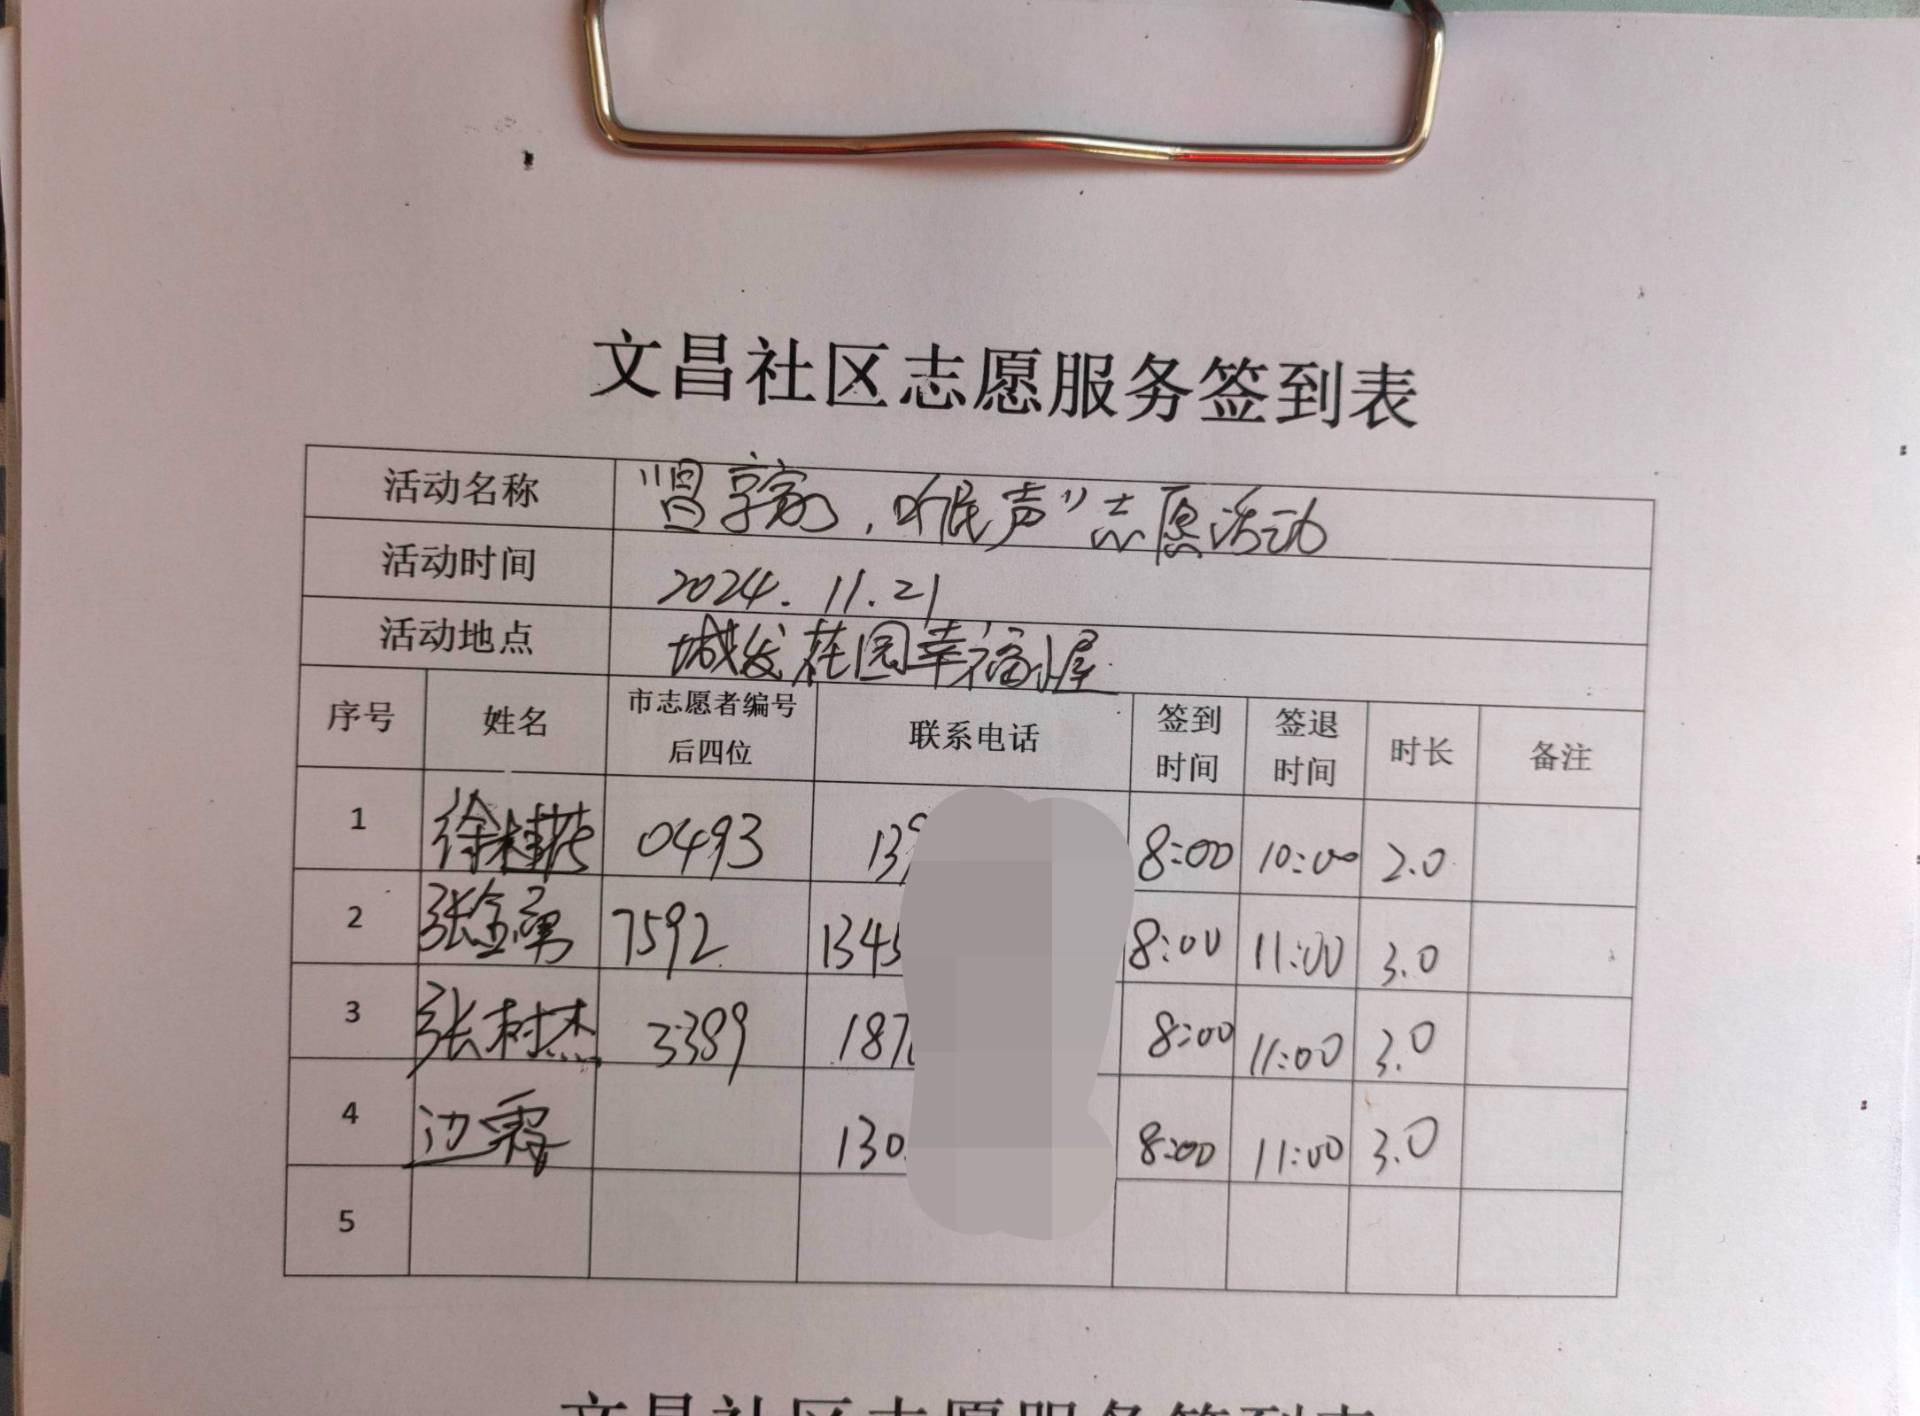 文昌社区志愿服务签到表
活动名称 “昌享家，听民声”志愿活动
活动时间 2024.11.21
活动地点 城发花园幸福小屋
序号 姓名 市志愿者编号后四位 联系电话 签到时间 签退时间 时长 备注
1 徐桂花 0493 139 8:00 10:00 2.0
2 张金勇 7592 1345 8:00 11:00 3.0
3 张树杰 3389 187 8:00 11:00 3.0
4 边霞 130 8:00 11:00 3.0
5
文昌社区志愿服务签到表